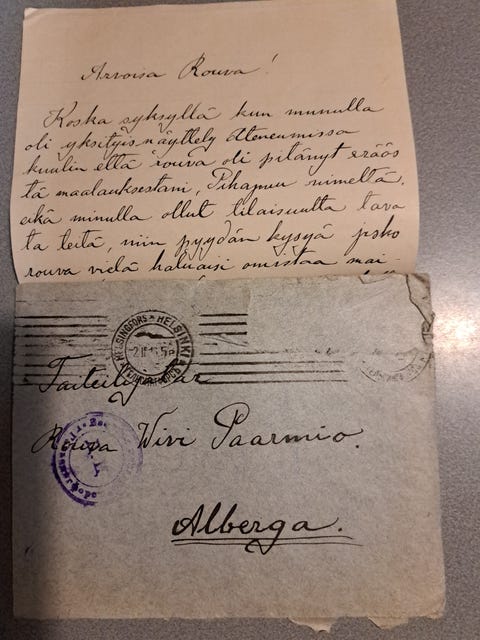 Arvoisa Rouva!
Koska syksyllä kun munulla
oli yksityis näyttely Ateneumissa
kuulin että rouva oli pitänyt eräös
tä maalauksestani, Pihapuu nimeltä,
eikä minulla ollut tilaisuutta tava
ta teitä, niin pyydän kysyä josko
rouva vielä haluaisi omistaa mai-
HELSINGFORS * HELSINKI
Taiteilijatar
Rouva Wivi Paarmio.
Alberga.